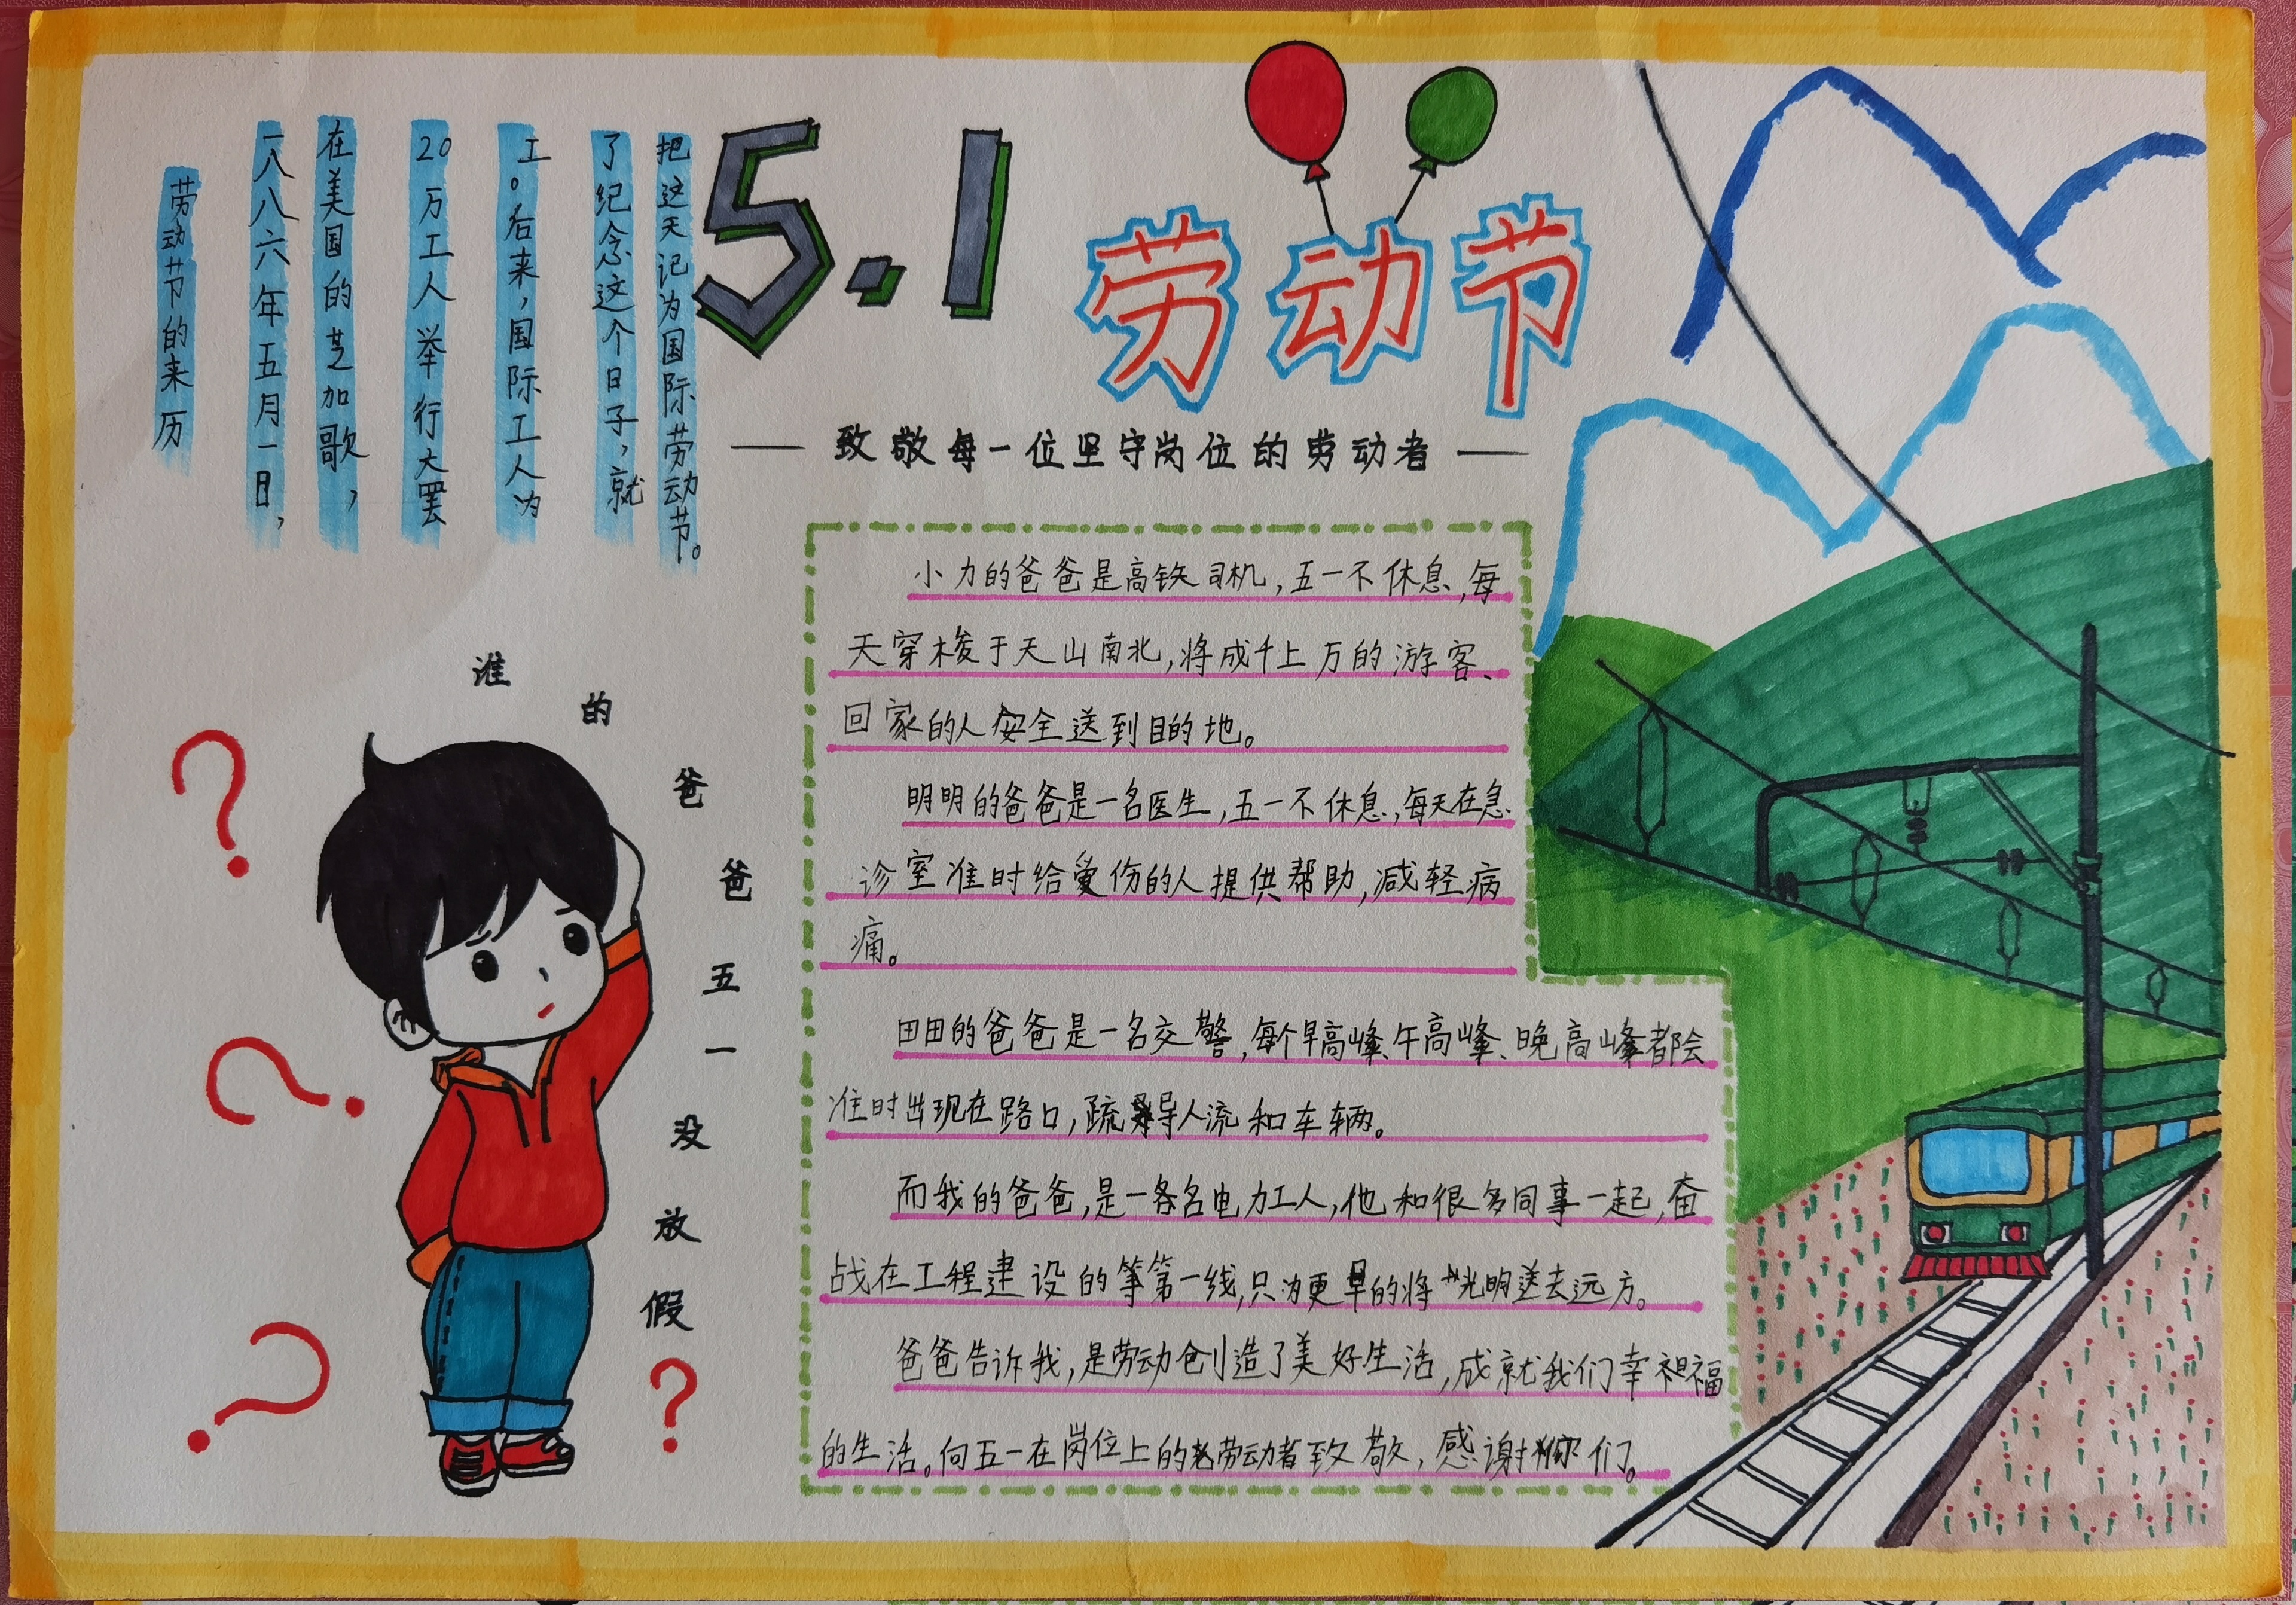 5.1
劳动节
致敬每一位坚守岗位的劳动者
劳动节的来历
一八八六年五月一日,
在美国的芝加歌,
20万工人举行大罢
工。后来,国际工人为
了纪念这个日子,就
把这天记为国际劳动节。
谁的爸爸五一没放假?
小力的爸爸是高铁司机,五一不休息,每
天穿梭于天山南北,将成千上万的游客、
回家的人安全送到目的地。
明明的爸爸是一名医生,五一不休息,每天在急
诊室准时给受伤的人提供帮助,减轻病
痛。
田田的爸爸是一名交警,每个早高峰、午高峰、晚高峰都会
准时出现在路口,疏导人流和车辆。
而我的爸爸,是一名电力工人,他和很多同事一起,奋
战在工程建设的第一线,只为更早的将光明送去远方。
爸爸告诉我,是劳动创造了美好生活,成就我们幸福
的生活。向五一在岗位上的劳动者致敬,感谢你们。